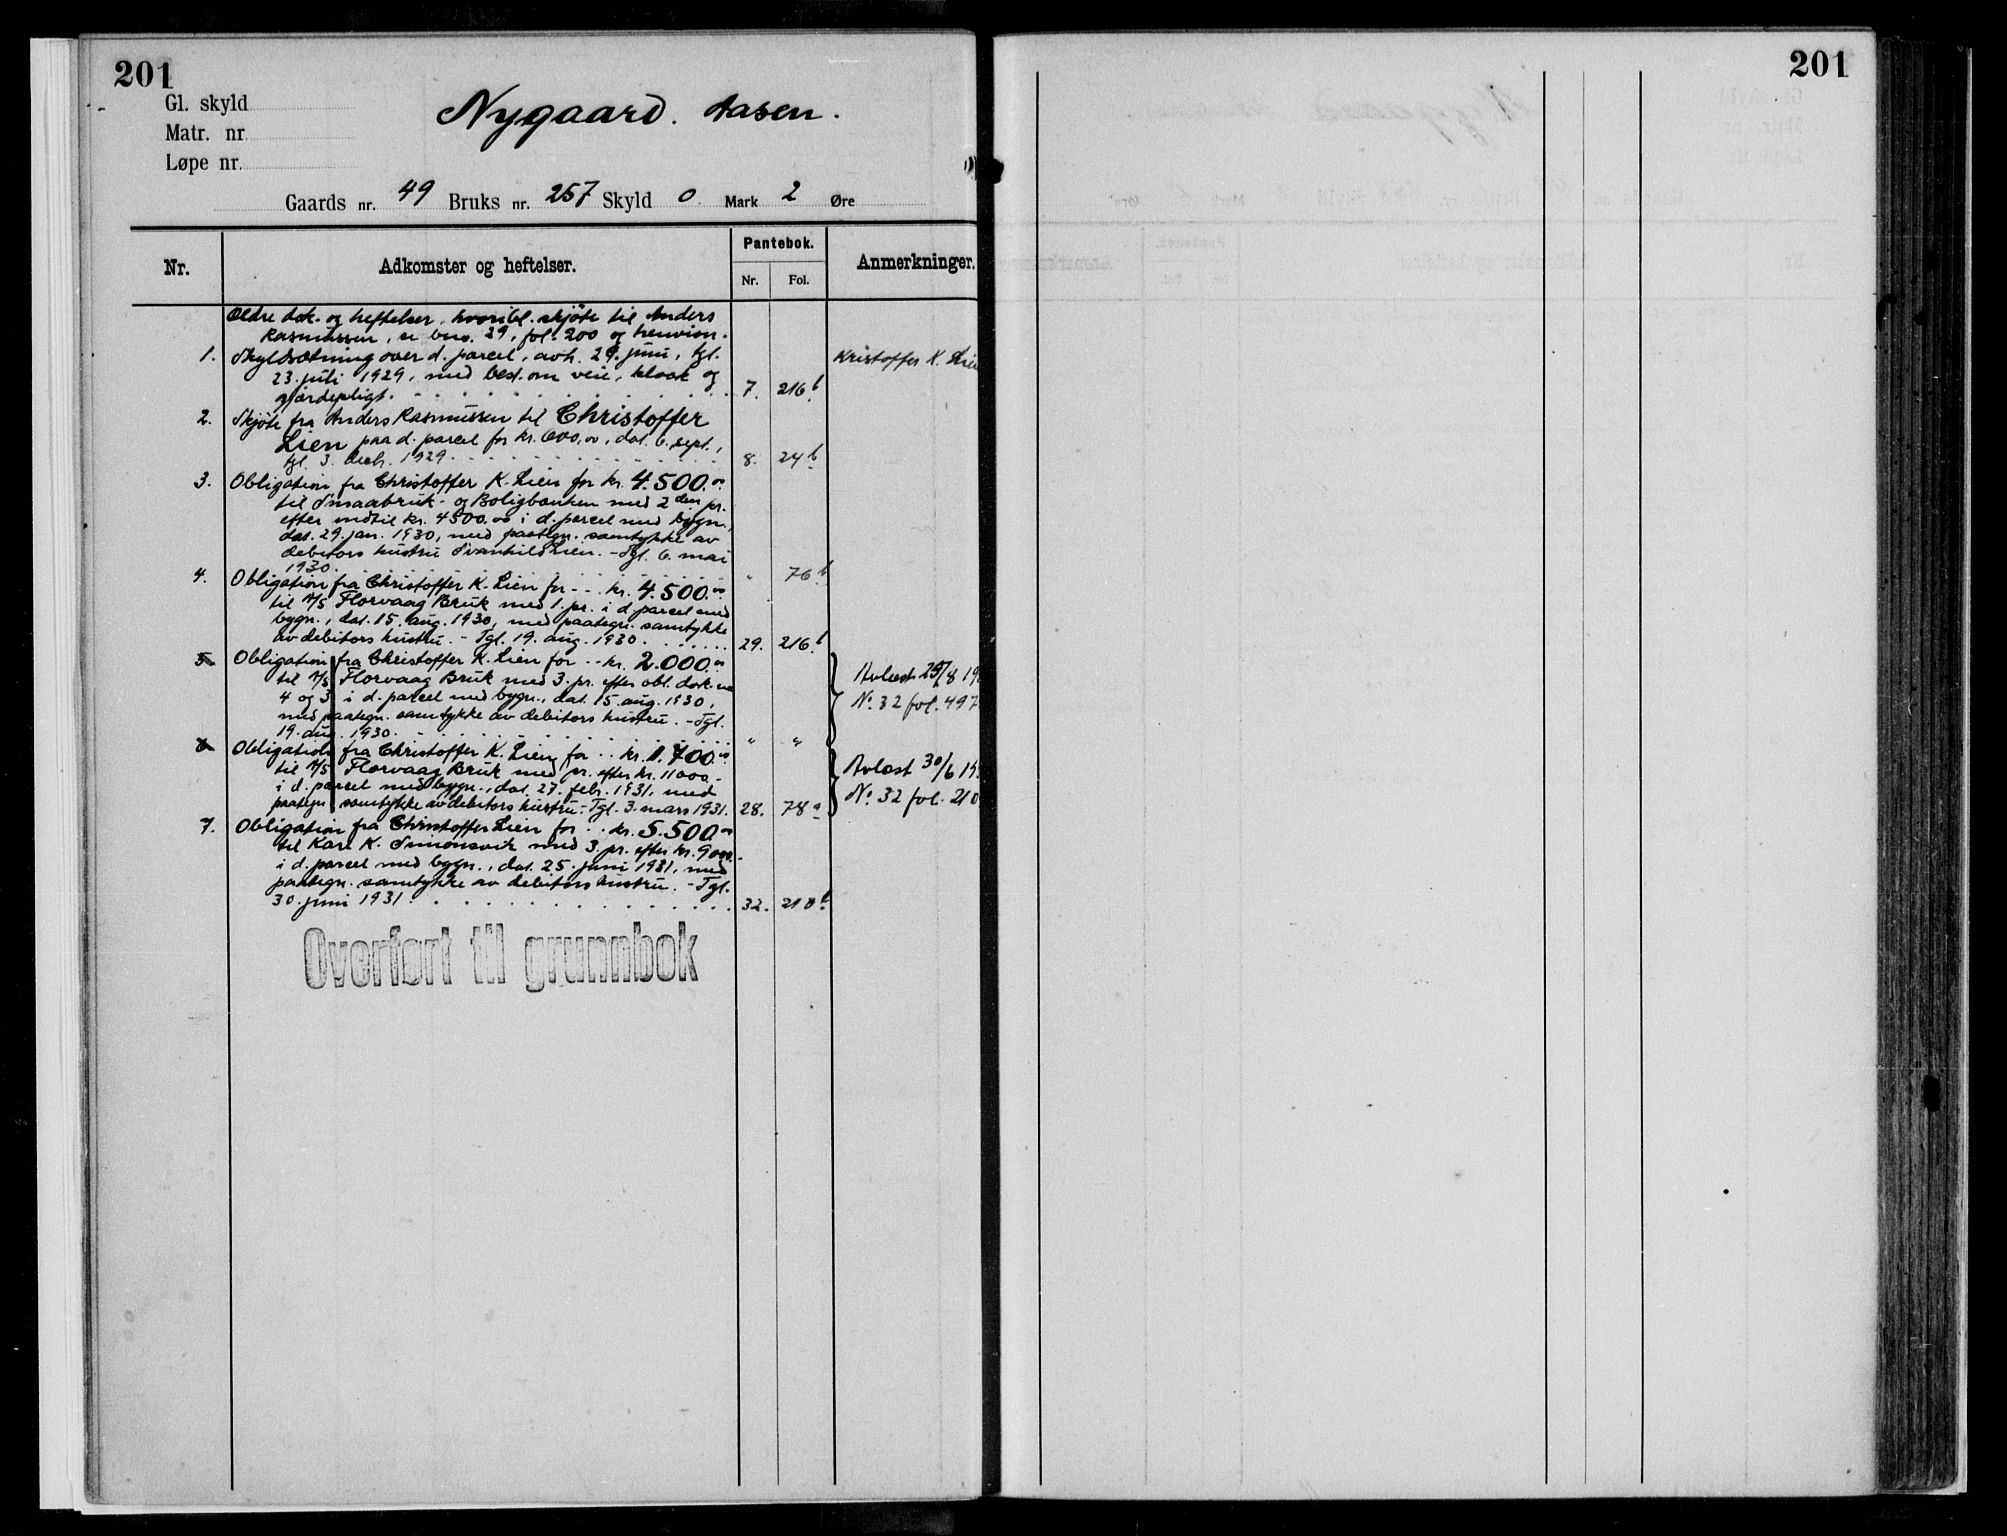 201
Gl. skyld
Matr. nr
Løpe nr.
Nygaard. Aasen.
Gaards nr. 49 Bruks nr. 257 Skyld 0 Mark 2 Øre
Nr.
Adkomster og heftelser.
Pantebok.
Nr.
Fol.
Anmerkninger.
Ældre dok. og heftelser, hvoribl. skjøte til Anders
Rasmussen, se bno. 29, fol. 200 og henvisn.
1. Skyldsætning over d. parcel, avh. 29. juni, tgl. Kristoffer K. Lien
23. juli 1929, med best. om veie, kloak og
gjærdepligt. 7. 216 b
2. Skjøte fra Anders Rasmussen til Christoffer
Lien paa d. parcel for kr. 600,00, dat. 6. sept.,
tgl. 3. decb. 1929. 8. 24 b
3. Obligation fra Christoffer K. Lien for kr. 4.500.00
til Smaabruk- og Boligbanken med 2den pr.
efter indtil kr. 4500.00 i d. parcel med bygn.,
dat. 29. jan. 1930, med paategn. samtykke av
debitors hustru Svanhild Lien. - Tgl. 6. mai
1930. " 76 b
4. Obligation fra Christoffer K. Lien for kr. 4.500.00
til A/S Florvaag Bruk med 1. pr. i d. parcel med
bygn., dat. 15. aug. 1930, med paategn. samtykke
av debitors hustru. - Tgl. 19. aug. 1930. 29. 216 b
5. Obligation fra Christoffer K. Lien for kr. 2.000.00
til A/S Florvaag Bruk med 3. pr. efter obl. dok. no
4 og 3 i d. parcel med bygn., dat. 15. aug. 1930,
med paategn. samtykke av debitors hustru. - Tgl.
19. aug. 1930. " "
Avlæst 29/8 19
No. 32 fol. 497
6. Obligation fra Christoffer K. Lien for kr. 1.700.00
til A/S Florvaag Bruk med pr. efter kr. 11000.-
i d. parcel med bygn., dat. 27. febr. 1931, med
paategn. samtykke av debitors hustru. - Tgl. 3. mars 1931. 28. 78 a
Avlæst 30/6 19
No. 32 fol. 210
7. Obligation fra Christoffer Lien for kr. 5.500.00
til Karl K. Simonsvik med 3. pr. efter kr. 9000.-
i d. parcel med bygn., dat. 25. juni 1931, med
paategn. samtykke av debitors hustru. - Tgl.
30. juni 1931. 32. 210 b
Overført til grunnbok
201